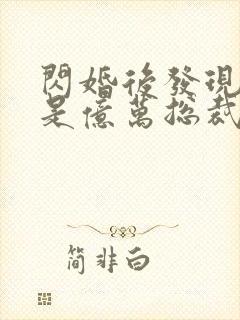 閃婚後發現
是億萬總裁
简非白